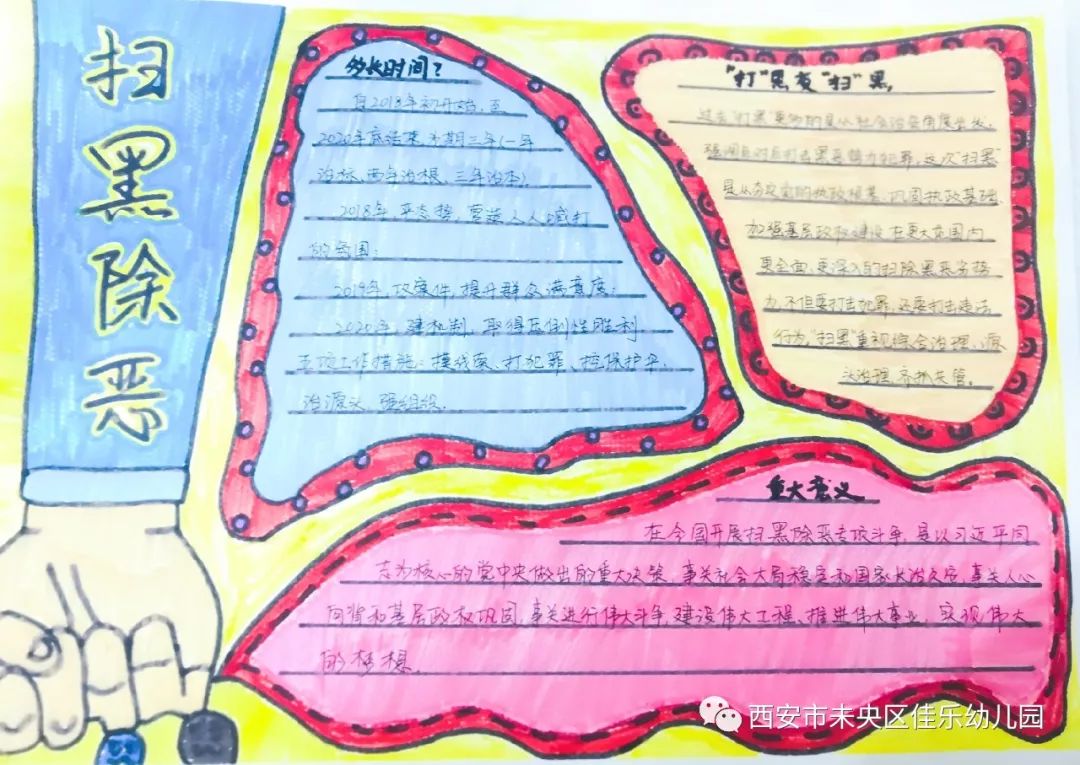 扫黑除恶
多长时间?
自2018年初开始,至
2020年底结束,为期三年(一年
治标、两年治根、三年治本)。
2018年,平态势,营造人人喊打
的氛围;
2019年,攻案件,提升群众满意度;
2020年,建机制,取得压倒性胜利
五项工作措施:摸线索、打犯罪、挖保护伞、
治源头、强组织。
"打"黑变"扫"黑,
过去"打黑"更多的是从社会治安角度出发,
强调点对点打击黑恶势力犯罪,这次"扫黑"
是从夯实党的执政根基、巩固执政基础、
加强基层政权建设,在更大范围内
更全面、更深入的扫除黑恶势
力,不但要打击犯罪,还要打击违法
行为,"扫黑"重视综合治理、源
头治理、齐抓共管。
重大意义
在全国开展扫黑除恶专项斗争,是以习近平同
志为核心的党中央做出的重大决策,事关社会大局稳定和国家长治久安,事关人心
向背和基层政权巩固,事关进行伟大斗争,建设伟大工程、推进伟大事业、实现伟大
的梦想。
西安市未央区佳乐幼儿园